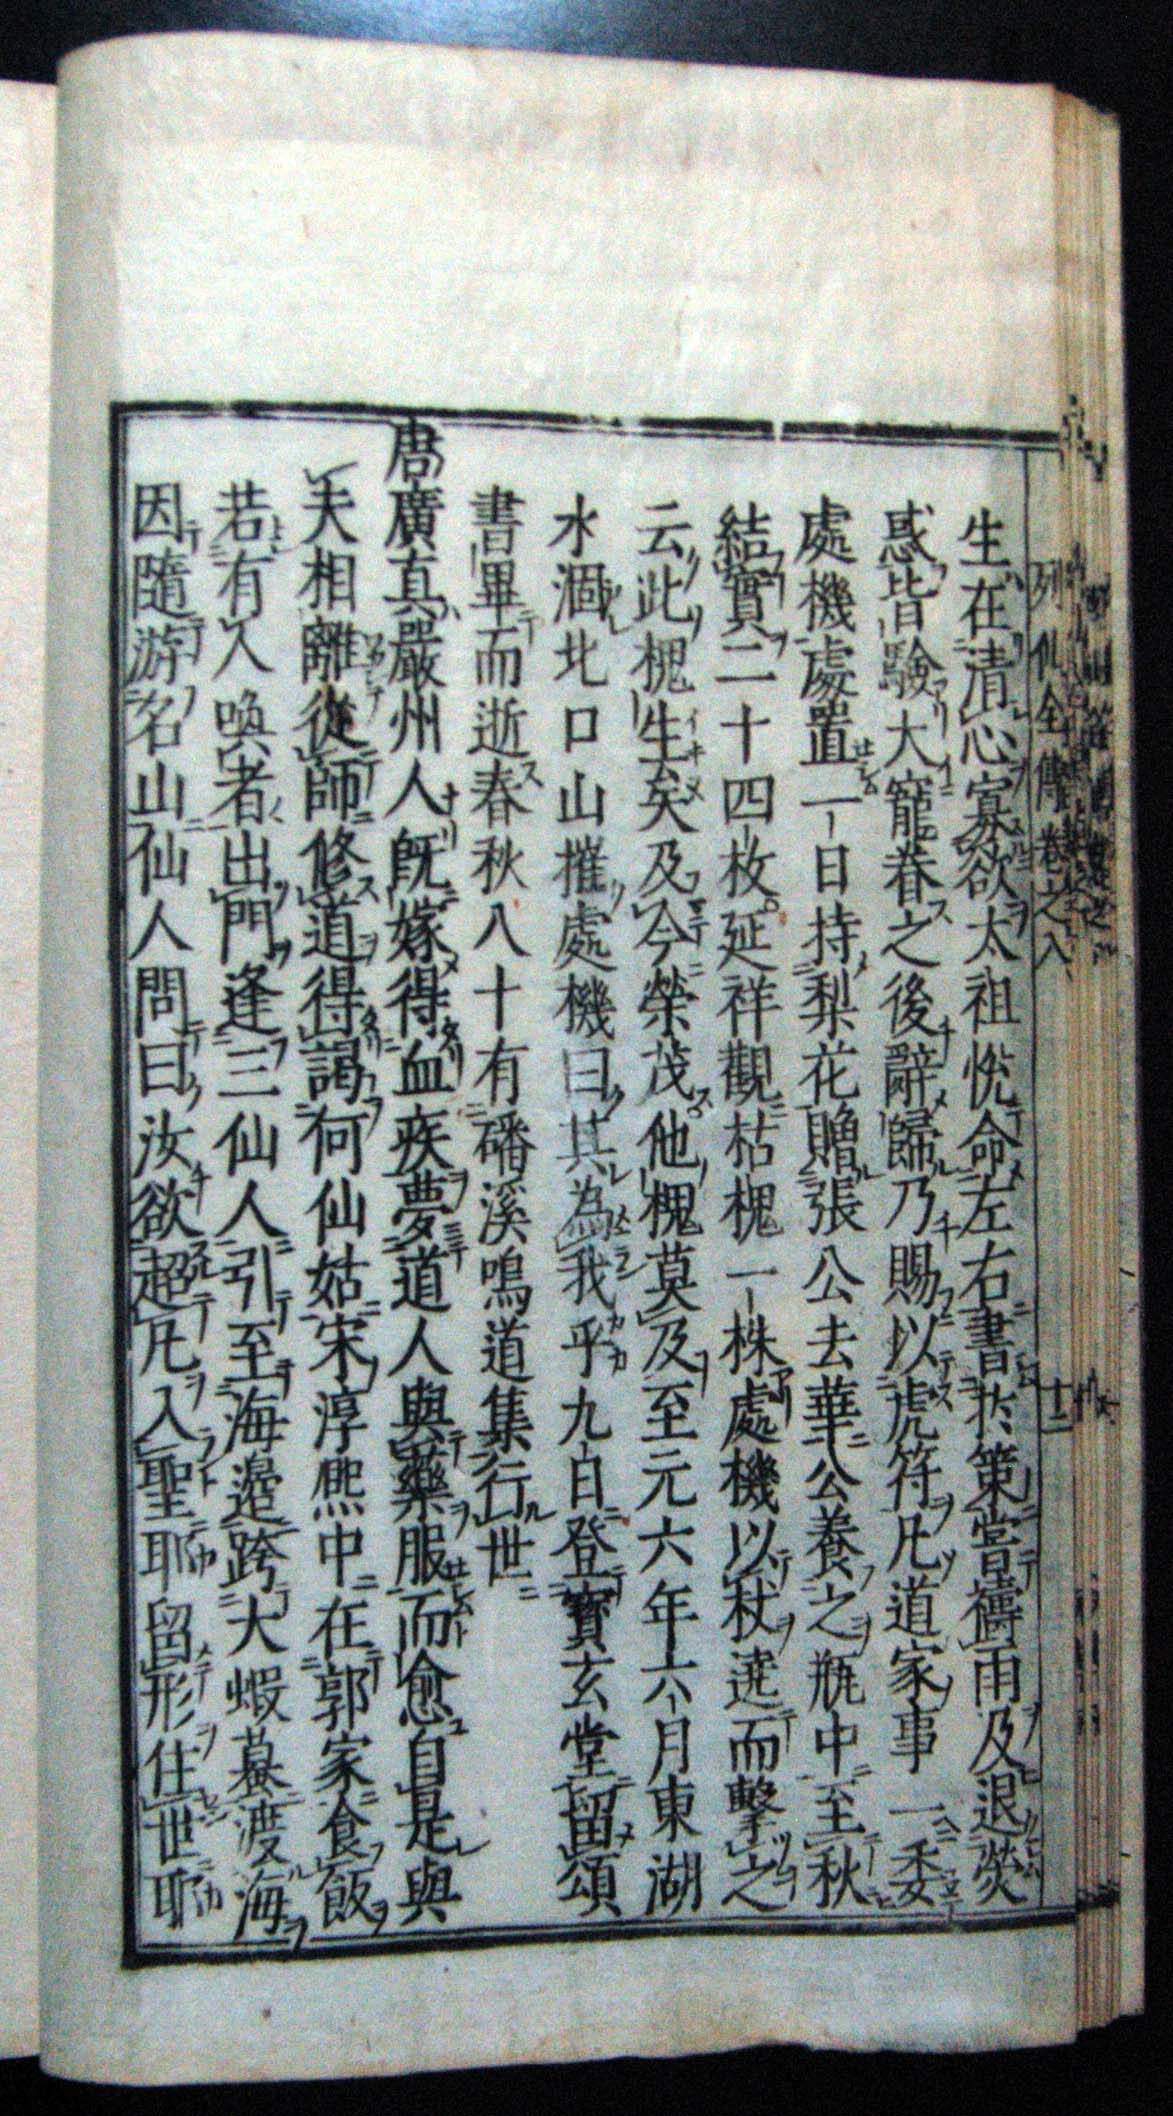 列仙全傳卷之八 十二
生在清心寡欲太祖悅命左右書於策嘗禱雨及退熒
惑皆驗大寵眷之後辭歸乃賜以虎符凡道家事一委
處機處置一日持梨花贈張公去華公養之瓶中至秋
結實二十四枚延祥觀枯槐一株處機以杖逹而擊之
云此槐生矣及今榮茂他槐莫及至元六年六月東湖
水涸北口山摧處機曰其為我乎九日登寳玄堂留頌
書畢而逝春秋八十有磻溪鳴道集行世
唐廣真嚴州人既嫁得血疾夢道人與藥服而愈自是與
夫相離從師修道得謁何仙姑宋淳熈中在郭家食飯
若有人喚者出門逢三仙人引至海邉跨大蝦蟇渡海
因隨游名山仙人問曰汝欲超凡入聖耶留形住世耶